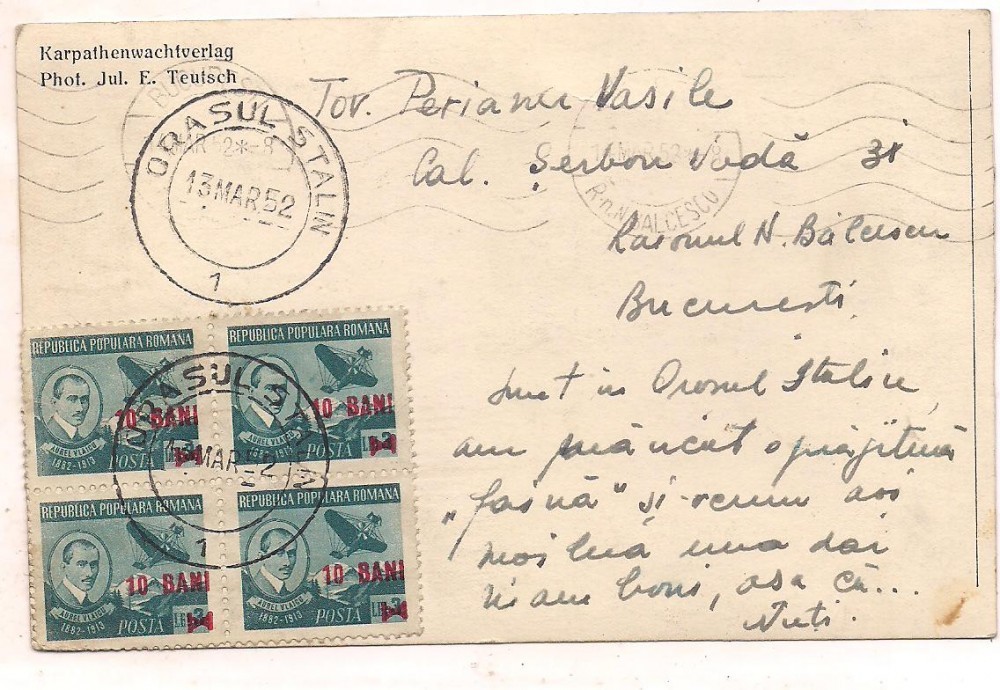 Karpathenwachtverlag
Phot. Jul. E. Teutsch
ORASUL STALIN
13 MAR 52
1
Tov. Perianu Vasile
Cal. Șerban Vodă 31
Raionul N. Bălcescu
București
Sunt in Orasul Stalin,
am mâncat o prăjitură
„fasnă" și-
mai lua una dar
n'am bani, asa că...
Nuți.
R-n. N. BALCESCU
REPUBLICA POPULARA ROMANA
10 BANI
AUREL VLAICU
1882-1913 POSTA LEI 3
REPUBLICA POPULARA ROMANA
10 BANI
AUREL VLAICU
1882-1913 POSTA LEI 3
ORASUL STALIN
13 MAR 52
1
REPUBLICA POPULARA ROMANA
10 BANI
AUREL VLAICU
1882-1913 POSTA LEI 3
REPUBLICA POPULARA ROMANA
10 BANI
AUREL VLAICU
1882-1913 POSTA LEI 3